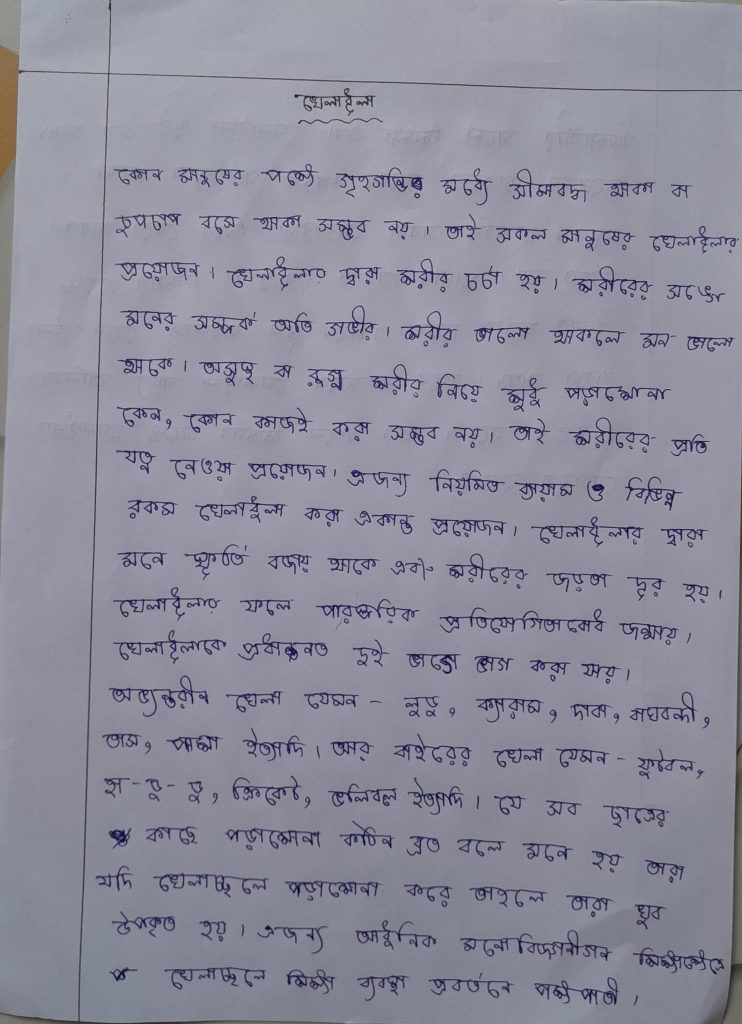 খেলাধূলা
কোন মানুষের পক্ষেই গৃহগন্ডির মধ্যে সীমাবদ্ধ থাকা বা
চুপচাপ বসে থাকা সম্ভব নয়। তাই সকল মানুষের খেলাধূলার
প্রয়োজন। খেলাধূলার দ্বারা শরীর চর্চা হয়। শরীরের সঙ্গে
মনের সম্পর্ক অতি গভীর। শরীর ভালো থাকলে মন ভালো
থাকে। অসুস্থ বা রুগ্ন শরীর নিয়ে শুধু পড়াশোনা
কেন, কোন কাজই করা সম্ভব নয়। তাই শরীরের প্রতি
যত্ন নেওয়া প্রয়োজন। এজন্য নিয়মিত ব্যায়াম ও বিভিন্ন
রকম খেলাধূলা করা একান্ত প্রয়োজন। খেলাধূলার দ্বারা
মনে স্ফূর্তি বজায় থাকে এবং শরীরের জড়তা দূর হয়।
খেলাধূলার ফলে পারস্পরিক প্রতিযোগিতাবোধ জন্মায়।
খেলাধূলাকে প্রধানত দুই ভাগে ভাগ করা যায়।
অভ্যন্তরীন খেলা যেমন - লুডু, ক্যারাম, দাবা, বাঘবন্দী,
তাস, পাশা ইত্যাদি। আর বাইরের খেলা যেমন - ফুটবল,
হা-ডু-ডু, ক্রিকেট, ভলিবল ইত্যাদি। যে সব ছাত্রের
কাছে পড়াশোনা কঠিন ব্রত বলে মনে হয় তারা
যদি খেলাচ্ছলে পড়াশোনা করে তাহলে তারা খুব
উপকৃত হয়। এজন্য আধুনিক মনোবিজ্ঞানীগন শিক্ষাক্ষেত্রে
খেলাচ্ছলে শিক্ষা ব্যবস্থা প্রবর্তনে পক্ষপাতী।